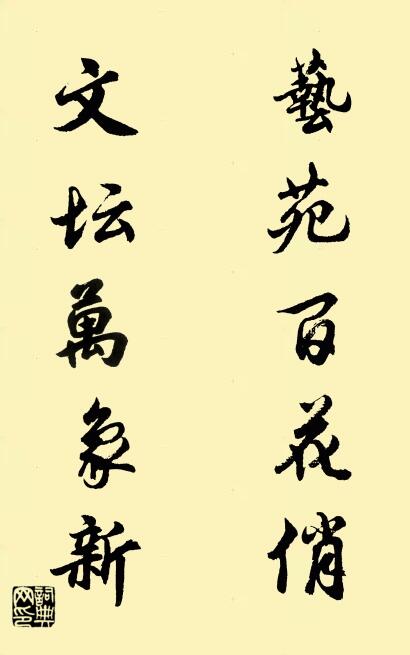 藝苑百花俏
文坛萬象新
詞典網印